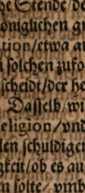 he Stende/de
ömglichen gn
tion/etwa au
solchen zufo
scheidt/der he
Dasselb/wi
eligion/vnd
len schuldiger
gkeit/ob es au
n solte/vnn